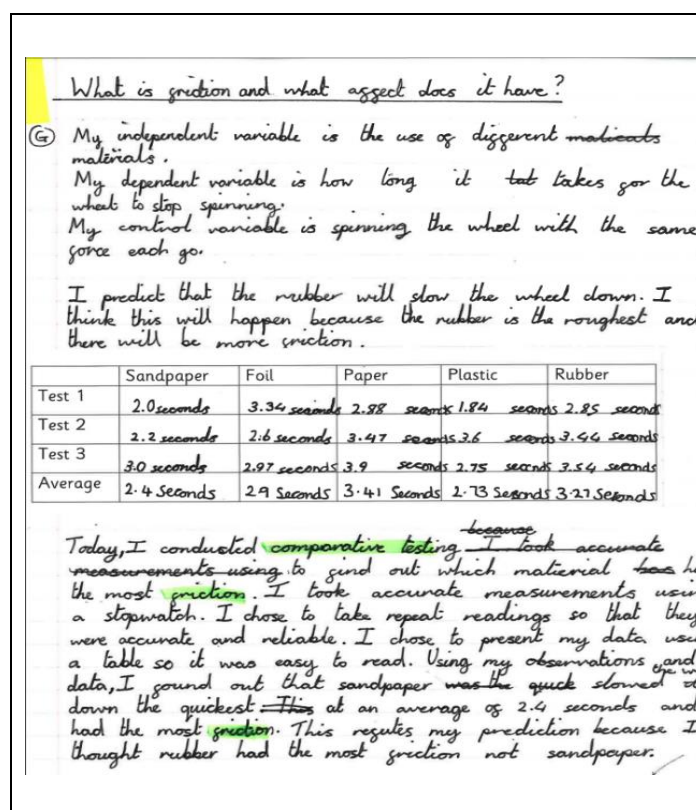 What is friction and what affect does it have?
G My independent variable is the use of different materials
materials.
My dependent variable is how long it tat takes for the
wheel to stop spinning.
My control variable is spinning the wheel with the same
force each go.
I predict that the rubber will slow the wheel down. I
think this will happen because the rubber is the roughest and
there will be more friction.
Sandpaper Foil Paper Plastic Rubber
Test 1 2.0 seconds 3.34 seconds 2.88 seconds 1.84 seconds 2.85 second
Test 2 2.2 seconds 2.6 seconds 3.47 seconds 3.6 seconds 3.44 seconds
Test 3 3.0 seconds 2.97 seconds 3.9 seconds 2.75 seconds 3.54 seconds
Average 2.4 Seconds 2.9 Seconds 3.41 Seconds 2.73 Seconds 3.27 Seconds
because
Today, I conducted comparative testing I took accurate
measurements using to find out which material has h
the most friction. I took accurate measurements usin
a stopwatch. I chose to take repeat readings so that they
were accurate and reliable. I chose to present my data use
a table so it was easy to read. Using my observations and
data, I found out that sandpaper was the quick slowed the w
down the quickest This at an average of 2.4 seconds and
had the most friction. This refutes my prediction because I
thought rubber had the most friction not sandpaper.